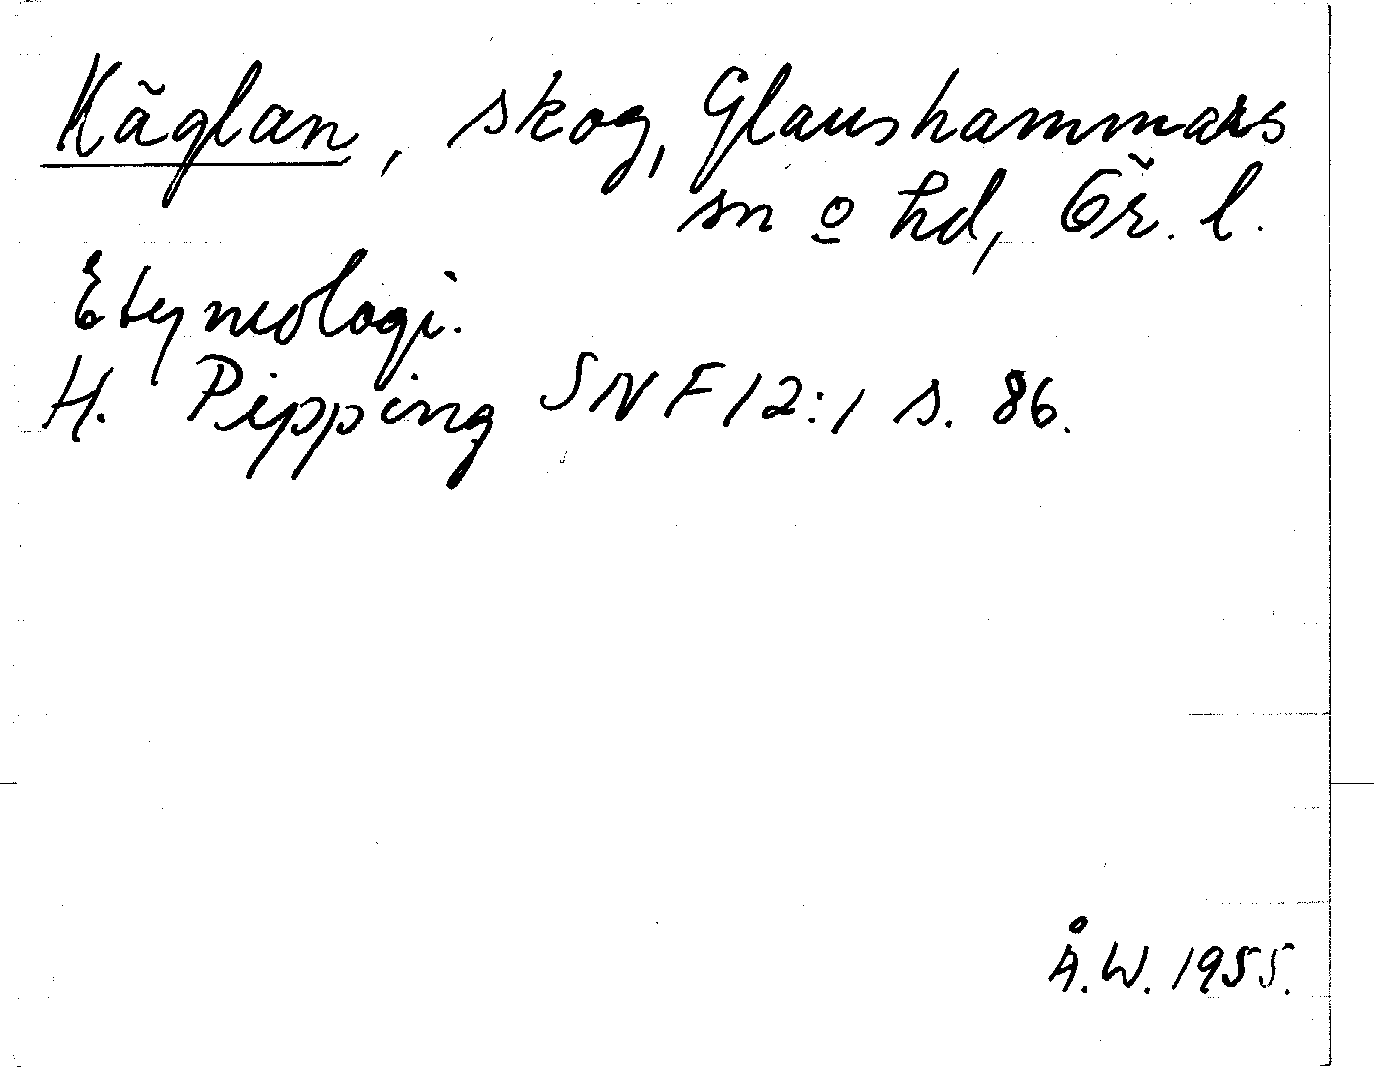 Käglan, skog, Glanshammars
sn o hd, Ör. l.
Etymologi.
H. Pipping SNF 12:1 s. 86.
Å.W. 1955.